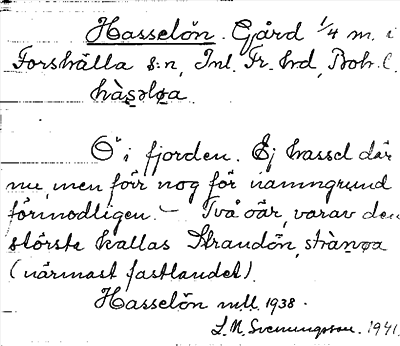 Hasselön. Gård 1/4 m. i
Forshälla s:n, Inl. Fr. hd, Boh. l.
hàsəløa.
Ö i fjorden. Ej hassel där
nu, men förr nog för namngrund
förmodligen. – Två öar, varav den
största kallas Strandön, stràn̥øa
(närmast fastlandet).
Hasselön m.fl. 1938.
1941.